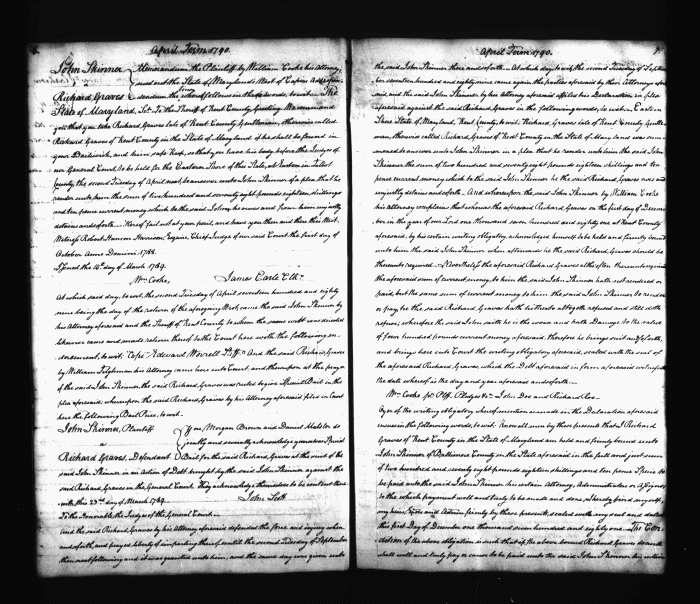 April Term 1790.
John Skinner
a
Richard Graves
Memorandum the Plaintiff by William Cooke his Attorney
sued out the State of Maryland's Writ of Capias Ad Resp
in the following form to wit. The
State of Maryland, Sct. To the Sheriff of Kent County Greeting We command
you that you take Richard Graves late of Kent County Gentleman, otherwise called
Richard Graves of Kent County in the State of Maryland if he shall be found in
your Bailiwick, and him safe keep so that you have his body before the Judges of
our General Court to be held for the Eastern Shore of this State, at Easton in Talbot
County the second Tuesday of April next, to answer unto John Skinner of a plea that he
render unto him the sum of two hundred and seventy eight pounds eighteen shillings
and ten pence current money, which to the said John he owes and from him unjustly
detains and so forth. Hereof fail not at your peril, and have you then and there this Writ.
Witness Robert Hanson Harrison, Esquire, Chief Judge of our said Court the first day of
October Anno Domini 1788.
Issued the 16th day of March 1789.
Wm. Cooke, James Earle Clk.
At which said day, to wit, the second Tuesday of April seventeen hundred and eighty
nine being the day of the return of the aforegoing Writ, came the said John Skinner by
his Attorney aforesaid and the Sheriff of Kent County to whom the same writ was directed
likewise came and made return thereof to the Court here with the following en-
dorsement, to wit; Cepi Edward Worrell Shff. And the said Richard Graves
by William Tilghman his Attorney came into Court, and thereupon at the prayer
of the said John Skinner, the said Richard Graves was ruled to give Special Bail in the
plea aforesaid; whereupon the said Richard Graves by his Attorney aforesaid filed in Court
here the following Bail Piece, to wit.
John Skinner, Plaintiff
a
Richard Graves, Defendant
You, Morgan Brown and Daniel do
jointly and severally acknowledge yourselves Special
Bail for the said Richard Graves at the suit of the
said John Skinner in an action of Debt brought by the said John Skinner against the
said Richard Graves in the General Court. They acknowledge themselves to be content therewith
this 23d day of March 1789. John Lott
To the Honorable the Judges of the General Court.
And the said Richard Graves by his Attorney aforesaid defends the force and injury when
and so forth, and prayed liberty of imparling thereof until the second Tuesday of September
then next following and it was granted unto him, and the same day was given unto
April Term 1790.
the said John Skinner there and so forth. At which day, to wit, the second Tuesday of Septem
ber seventeen hundred and eighty nine came again the parties aforesaid by their Attorneys afore
said, and the said John Skinner by his Attorney aforesaid exhibited his Declaration in plea
aforesaid against the said Richard Graves in the following words, to wit. Eastern
Shore State of Maryland, Kent County, to wit, Richard Graves late of Kent County Gentle
man, otherwise called Richard Graves of Kent County in the State of Maryland was sum
moned to answer unto John Skinner in a plea that he render unto him the said John
Skinner the sum of two hundred and seventy eight pounds eighteen shillings and ten
pence current money which to the said John Skinner he the said Richard Graves owes and
unjustly detains and so forth. And whereupon the said John Skinner by William Cooke
his Attorney complains that whereas the aforesaid Richard Graves on the first day of Decem
ber in the year of our Lord one thousand seven hundred and eighty one at Kent County
aforesaid, by his certain writing obligatory, acknowledged himself to be held and firmly bound
unto him the said John Skinner when afterwards he the said Richard Graves should be
thereunto required. Nevertheless the aforesaid Richard Graves altho often thereunto required
the aforesaid sum of current money, to him the said John Skinner hath not rendered or
paid, but the same sum of current money to him the said John Skinner to render
or pay, he the said Richard Graves hath hitherto altogether refused and still doth
refuse; wherefore the said John saith he is the worse and hath Damage to the value
of four hundred pounds current money aforesaid, therefore he brings suit and so forth,
and brings here into Court the writing obligatory aforesaid, sealed with the seal of
the aforesaid Richard Graves, which the Debt aforesaid in form aforesaid witnesseth
the date whereof is the day and year aforesaid and so forth.
Wm. Cooke for Plff. Pledges &c. John Doe and Richard Roe
Oyer of the writing obligatory whereof mention is made in the Declaration aforesaid
ensues in the following words, to wit. Know all men by these presents that I Richard
Graves of Kent County in the State of Maryland am held and firmly bound unto
John Skinner of Baltimore County in the State aforesaid in the full and just sum
of two hundred and seventy eight pounds eighteen shillings and ten pence Specie to
be paid unto the said John Skinner his certain Attorney, Administrators or Assigns
to the which payment well and truly to be made and done, I hereby bind myself,
my heirs, Exors and Admrs firmly by these presents, sealed with my seal and dated
this first day of December one thousand seven hundred and eighty one. The Con
dition of the above obligation is such that if the above bound Richard Graves do and
shall well and truly pay or cause to be paid unto the said John Skinner his certain